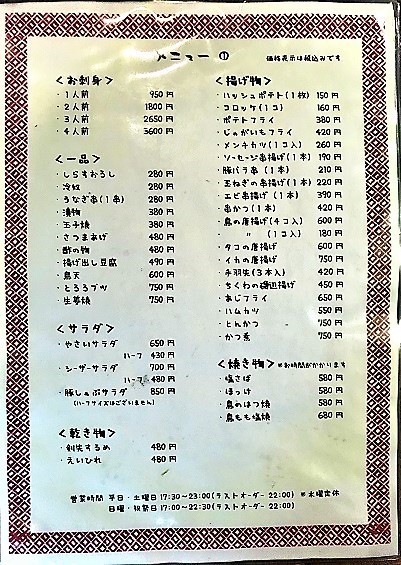 メニュー ①
価格表示は税込みです
<お刺身>
・1人前 950円
・2人前 1800円
・3人前 2650円
・4人前 3600円
<一品>
・しらすおろし 280円
・冷奴 280円
・うなぎ串(1串) 280円
・漬物 380円
・玉子焼 380円
・さつまあげ 480円
・酢の物 480円
・揚げ出し豆腐 490円
・鳥天 600円
・とろろブツ 750円
・生姜焼 750円
<サラダ>
・やさいサラダ 650円
ハーフ 430円
・シーザーサラダ 700円
ハーフ 480円
・豚しゃぶサラダ 850円
(ハーフサイズはございません)
<乾き物>
・剣先するめ 480円
・えいひれ 480円
<揚げ物>
・ハッシュポテト(1枚) 150円
・コロッケ(1コ) 160円
・ポテトフライ 380円
・じゃがいもフライ 420円
・メンチカツ(1コ入) 260円
・ソーセージ串揚げ(1本) 190円
・豚バラ串(1本) 210円
・玉ねぎの串揚げ(1本) 220円
・エビ串揚げ(1本) 390円
・串かつ(1本) 420円
・鳥の唐揚げ(4コ入) 600円
〃 (1コ入) 180円
・タコの唐揚げ 600円
・イカの唐揚げ 750円
・手羽先(3本入) 420円
・ちくわの磯辺揚げ 450円
・あじフライ 650円
・ハムカツ 550円
・とんかつ 750円
・かつ煮 750円
<焼き物> ※お時間がかかります
・塩さば 580円
・ほっけ 580円
・鳥のはつ焼 580円
・鳥もも塩焼 680円
営業時間 平日・土曜日 17:30~23:00(ラストオーダー 22:00) ※木曜定休
日曜・祝祭日 17:00~22:30(ラストオーダー 22:00)